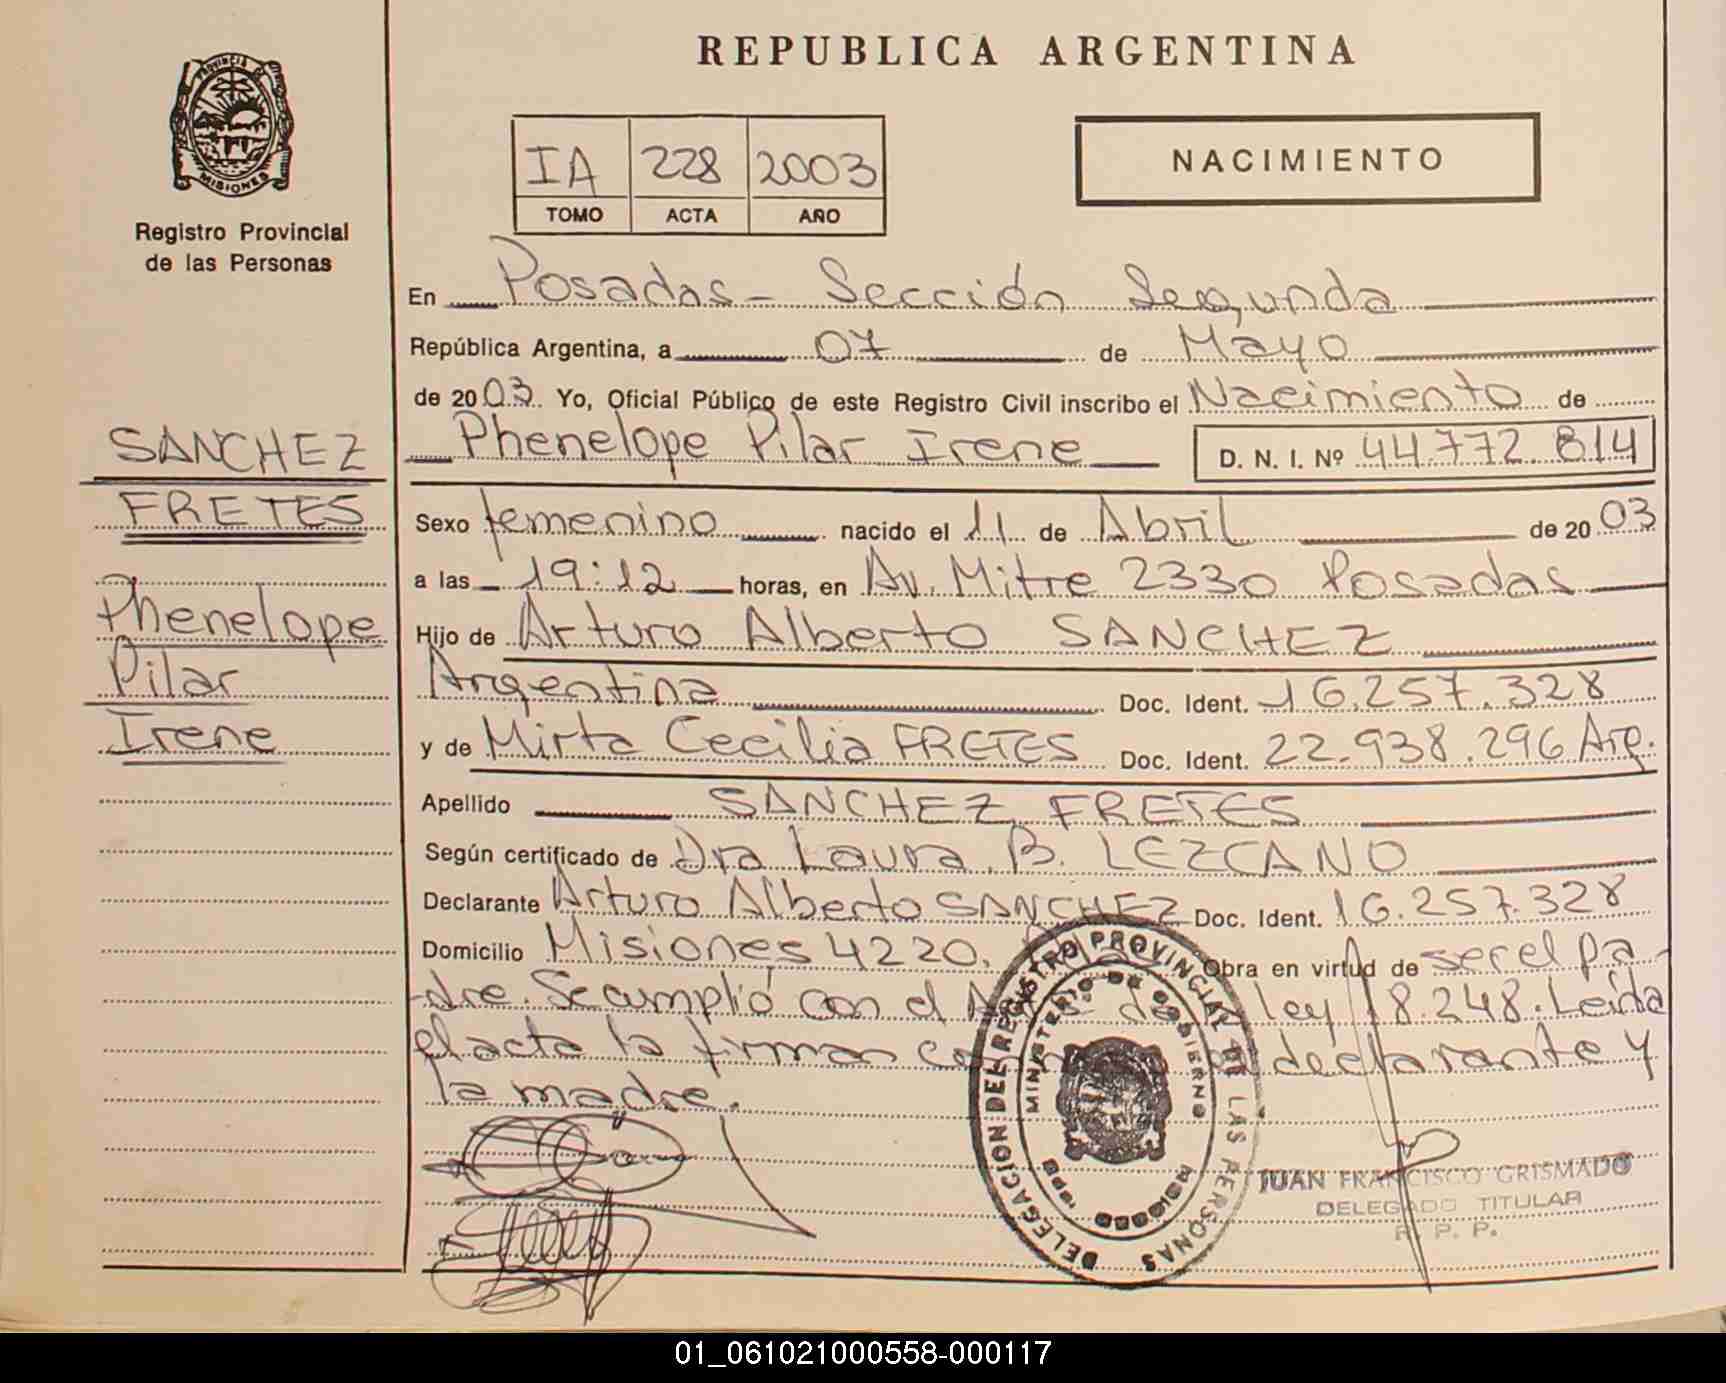 REPUBLICA ARGENTINA
PROVINCIA DE
MISIONES
Registro Provincial
de las Personas
IA 228 2003
TOMO ACTA AÑO
NACIMIENTO
SANCHEZ
FRETES
Phenelope
Pilar
Irene
En Posadas - Sección Segunda
República Argentina, a 07 de Mayo
de 2003. Yo, Oficial Público de este Registro Civil inscribo el Nacimiento de
Phenelope Pilar Irene D. N. I. Nº 44.772.814
Sexo femenino nacido el 11 de Abril de 2003
a las 19:12 horas, en Av. Mitre 2330 Posadas
Hijo de Arturo Alberto SANCHEZ
Argentina Doc. Ident. 16.257.328
y de Mirta Cecilia FRETES Doc. Ident. 22.938.296 Arg.
Apellido SANCHEZ FRETES
Según certificado de Dra Laura B. LEZCANO
Declarante Arturo Alberto SANCHEZ Doc. Ident. 16.257.328
Domicilio Misiones 4220. Obra en virtud de ser el pa-
dre. Se cumplió con el de ley 18.248. Leida
el acta la firman declarante y
la madre.
DELEGACION DEL REGISTRO PROVINCIAL DE LAS PERSONAS
MINISTERIO DE GOBIERNO
JUAN FRANCISCO GRISMADO
DELEGADO TITULAR
R. P. P.
01_061021000558-000117